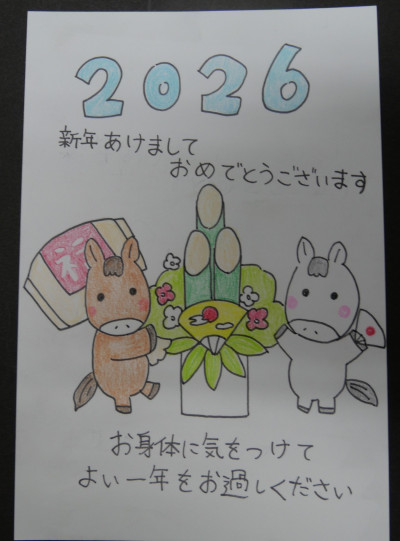 2026
新年あけまして
おめでとうございます
福
お身体に気をつけて
よい一年をお過しください